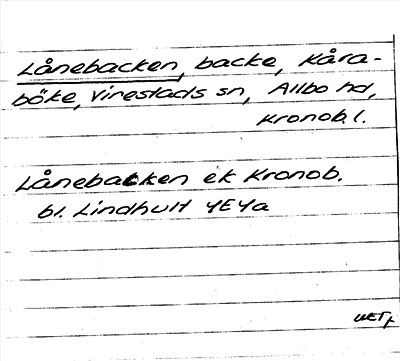 Lånebacken, backe, Kåra-
böke, Virestads sn, Allbo hd,
Kronob. l.
Lånebacken ek Kronob.
bl. Lindhult 4E4a